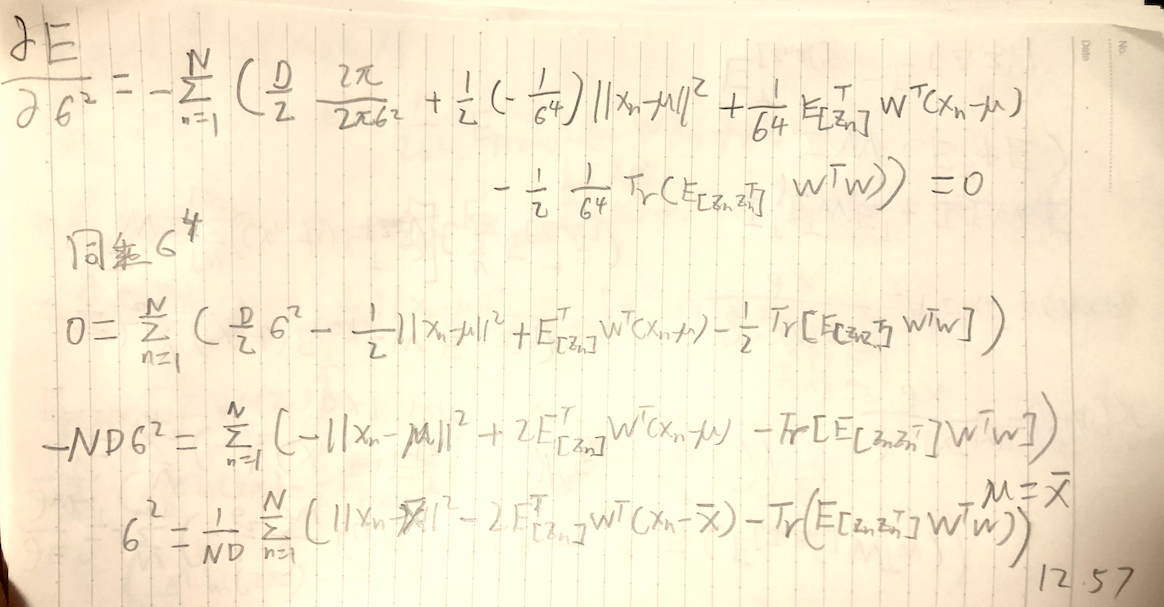 ∂E/∂6² = -∑_{n=1}^{N} (D/2 2π/2π6² + 1/2 (-1/6⁴) ||x_n-μ||² + 1/6⁴ E^T_{[z_n]} W^T(x_n-μ)
- 1/2 1/6⁴ Tr(E_{[z_n z_n^T]} W^T W)) = 0
同乘 6⁴
0 = ∑_{n=1}^{N} (D/2 6² - 1/2 ||x_n-μ||² + E^T_{[z_n]} W^T(x_n-μ) - 1/2 Tr[E_{[z_n z_n^T]} W^T W])
-ND6² = ∑_{n=1}^{N} (-||x_n-μ||² + 2E^T_{[z_n]} W^T(x_n-μ) - Tr[E_{[z_n z_n^T]} W^T W])
μ = x̄
6² = 1/ND ∑_{n=1}^{N} (||x_n-x̄||² - 2E^T_{[z_n]} W^T(x_n-x̄) - Tr(E_{[z_n z_n^T]} W^T W))
12.57
No.
Date